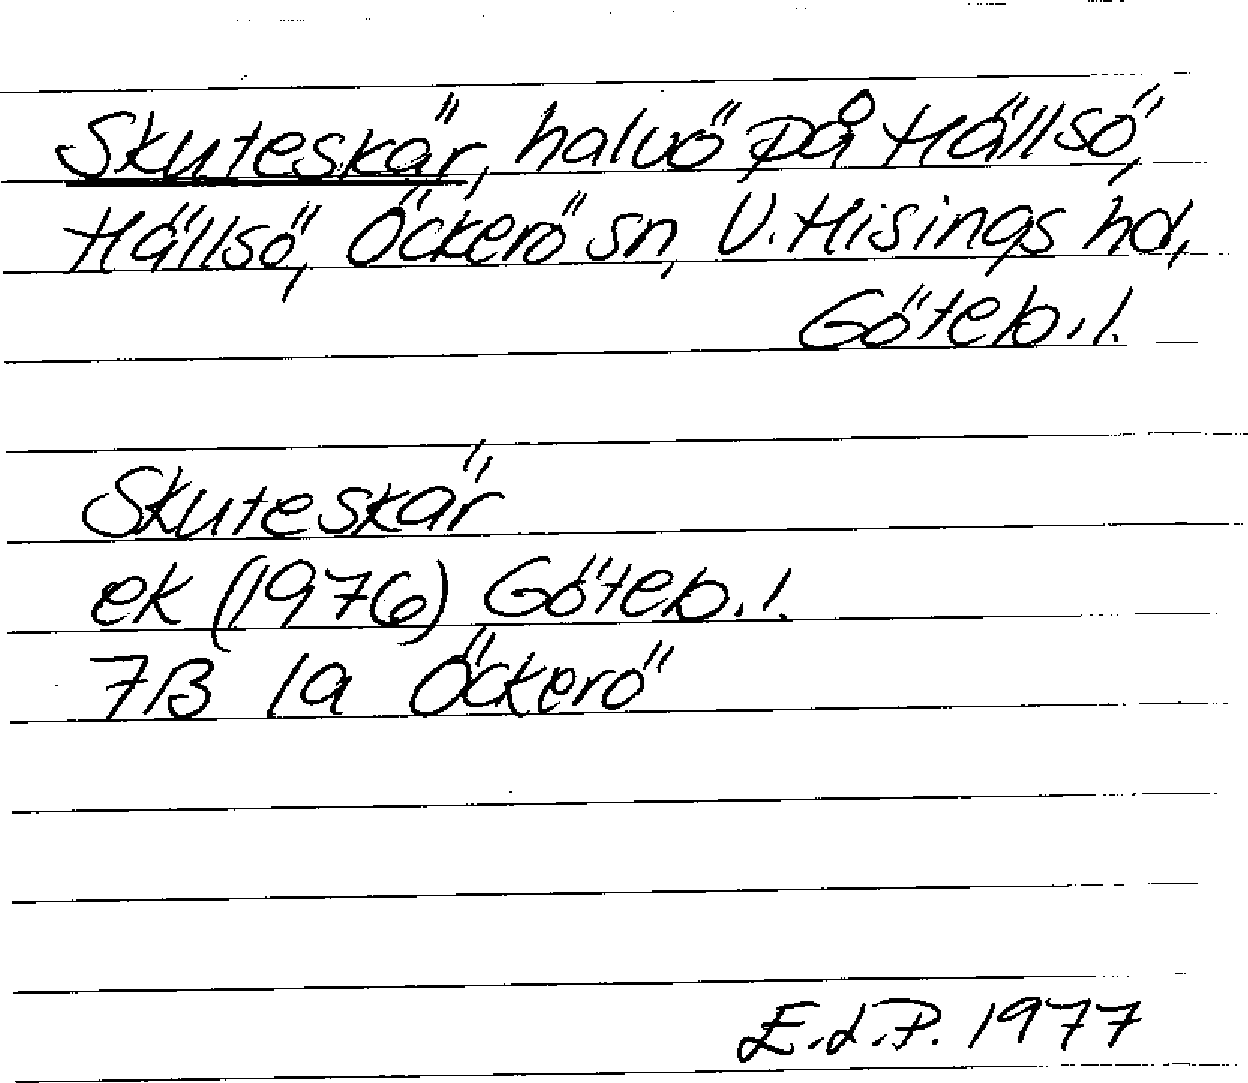 Skuteskär, halvö på Hällsö,
Hällsö, Öckerö sn, V. Hisings hd,
Göteb. l.
Skuteskär
ek (1976) Göteb. l.
7B 1a Öckerö
E.d.P. 1977